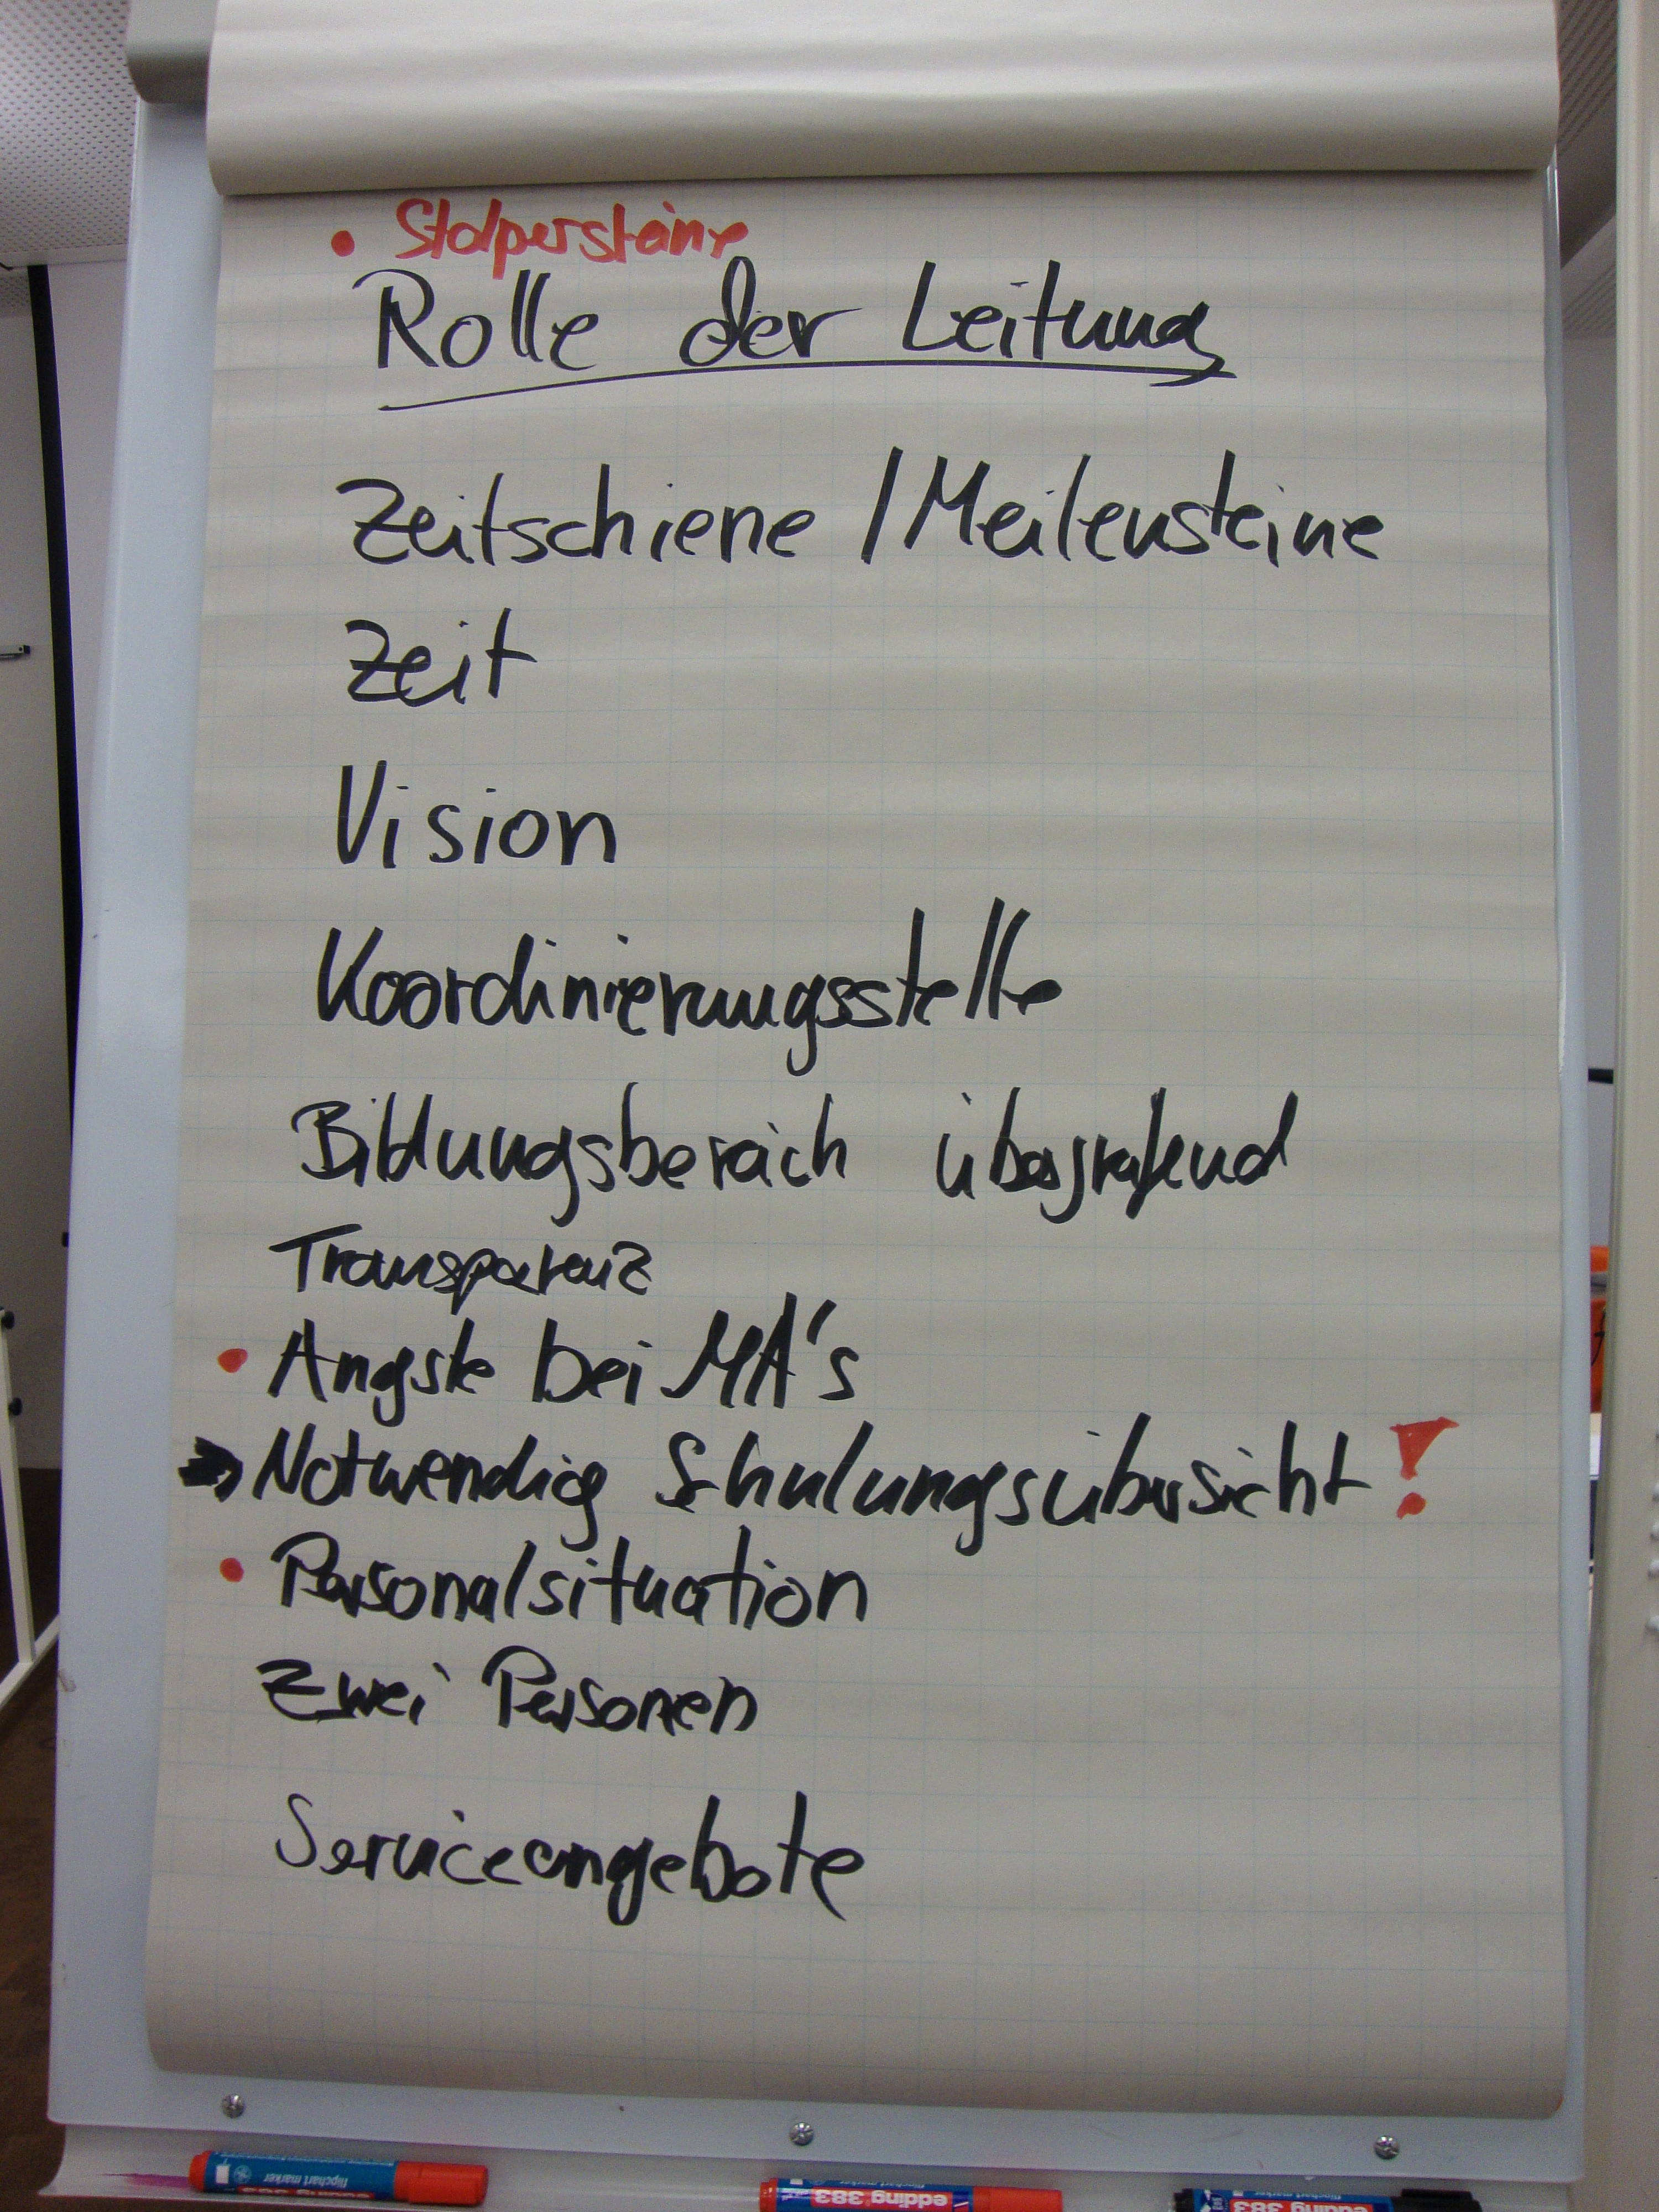 • Stolpersteine
Rolle der Leitung
Zeitschiene / Meilensteine
Zeit
Vision
Koordinierungsstelle
Bildungsbereich übergreifend
Transparenz
• Ängste bei MA's
➔ Notwendig Schulungsübersicht!
• Personalsituation
Zwei Personen
Serviceangebote
flipchart marker
edding 383
flipchart marker
edding 383
flipchart marker
edding 383